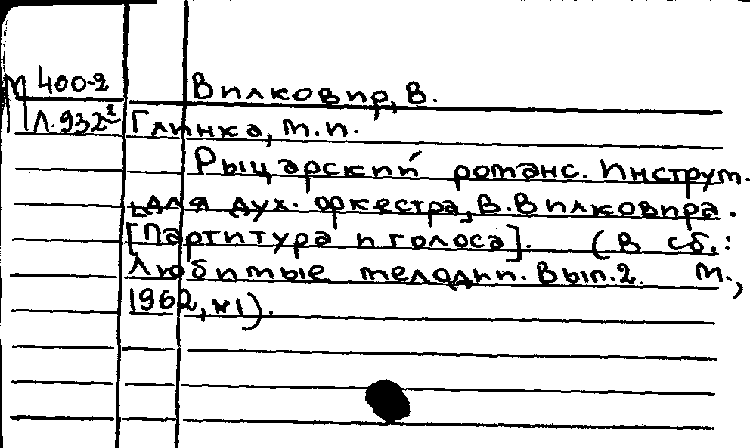 М 400-2 Вилковир, В.
Л.932² Глинка, М.И.
Рыцарский романс. Инструм.
для дух. оркестра, В.Вилковира.
[Партитура и голоса]. (В сб.:
Любимые мелодии. Вып.2. М.,
1962, №1).